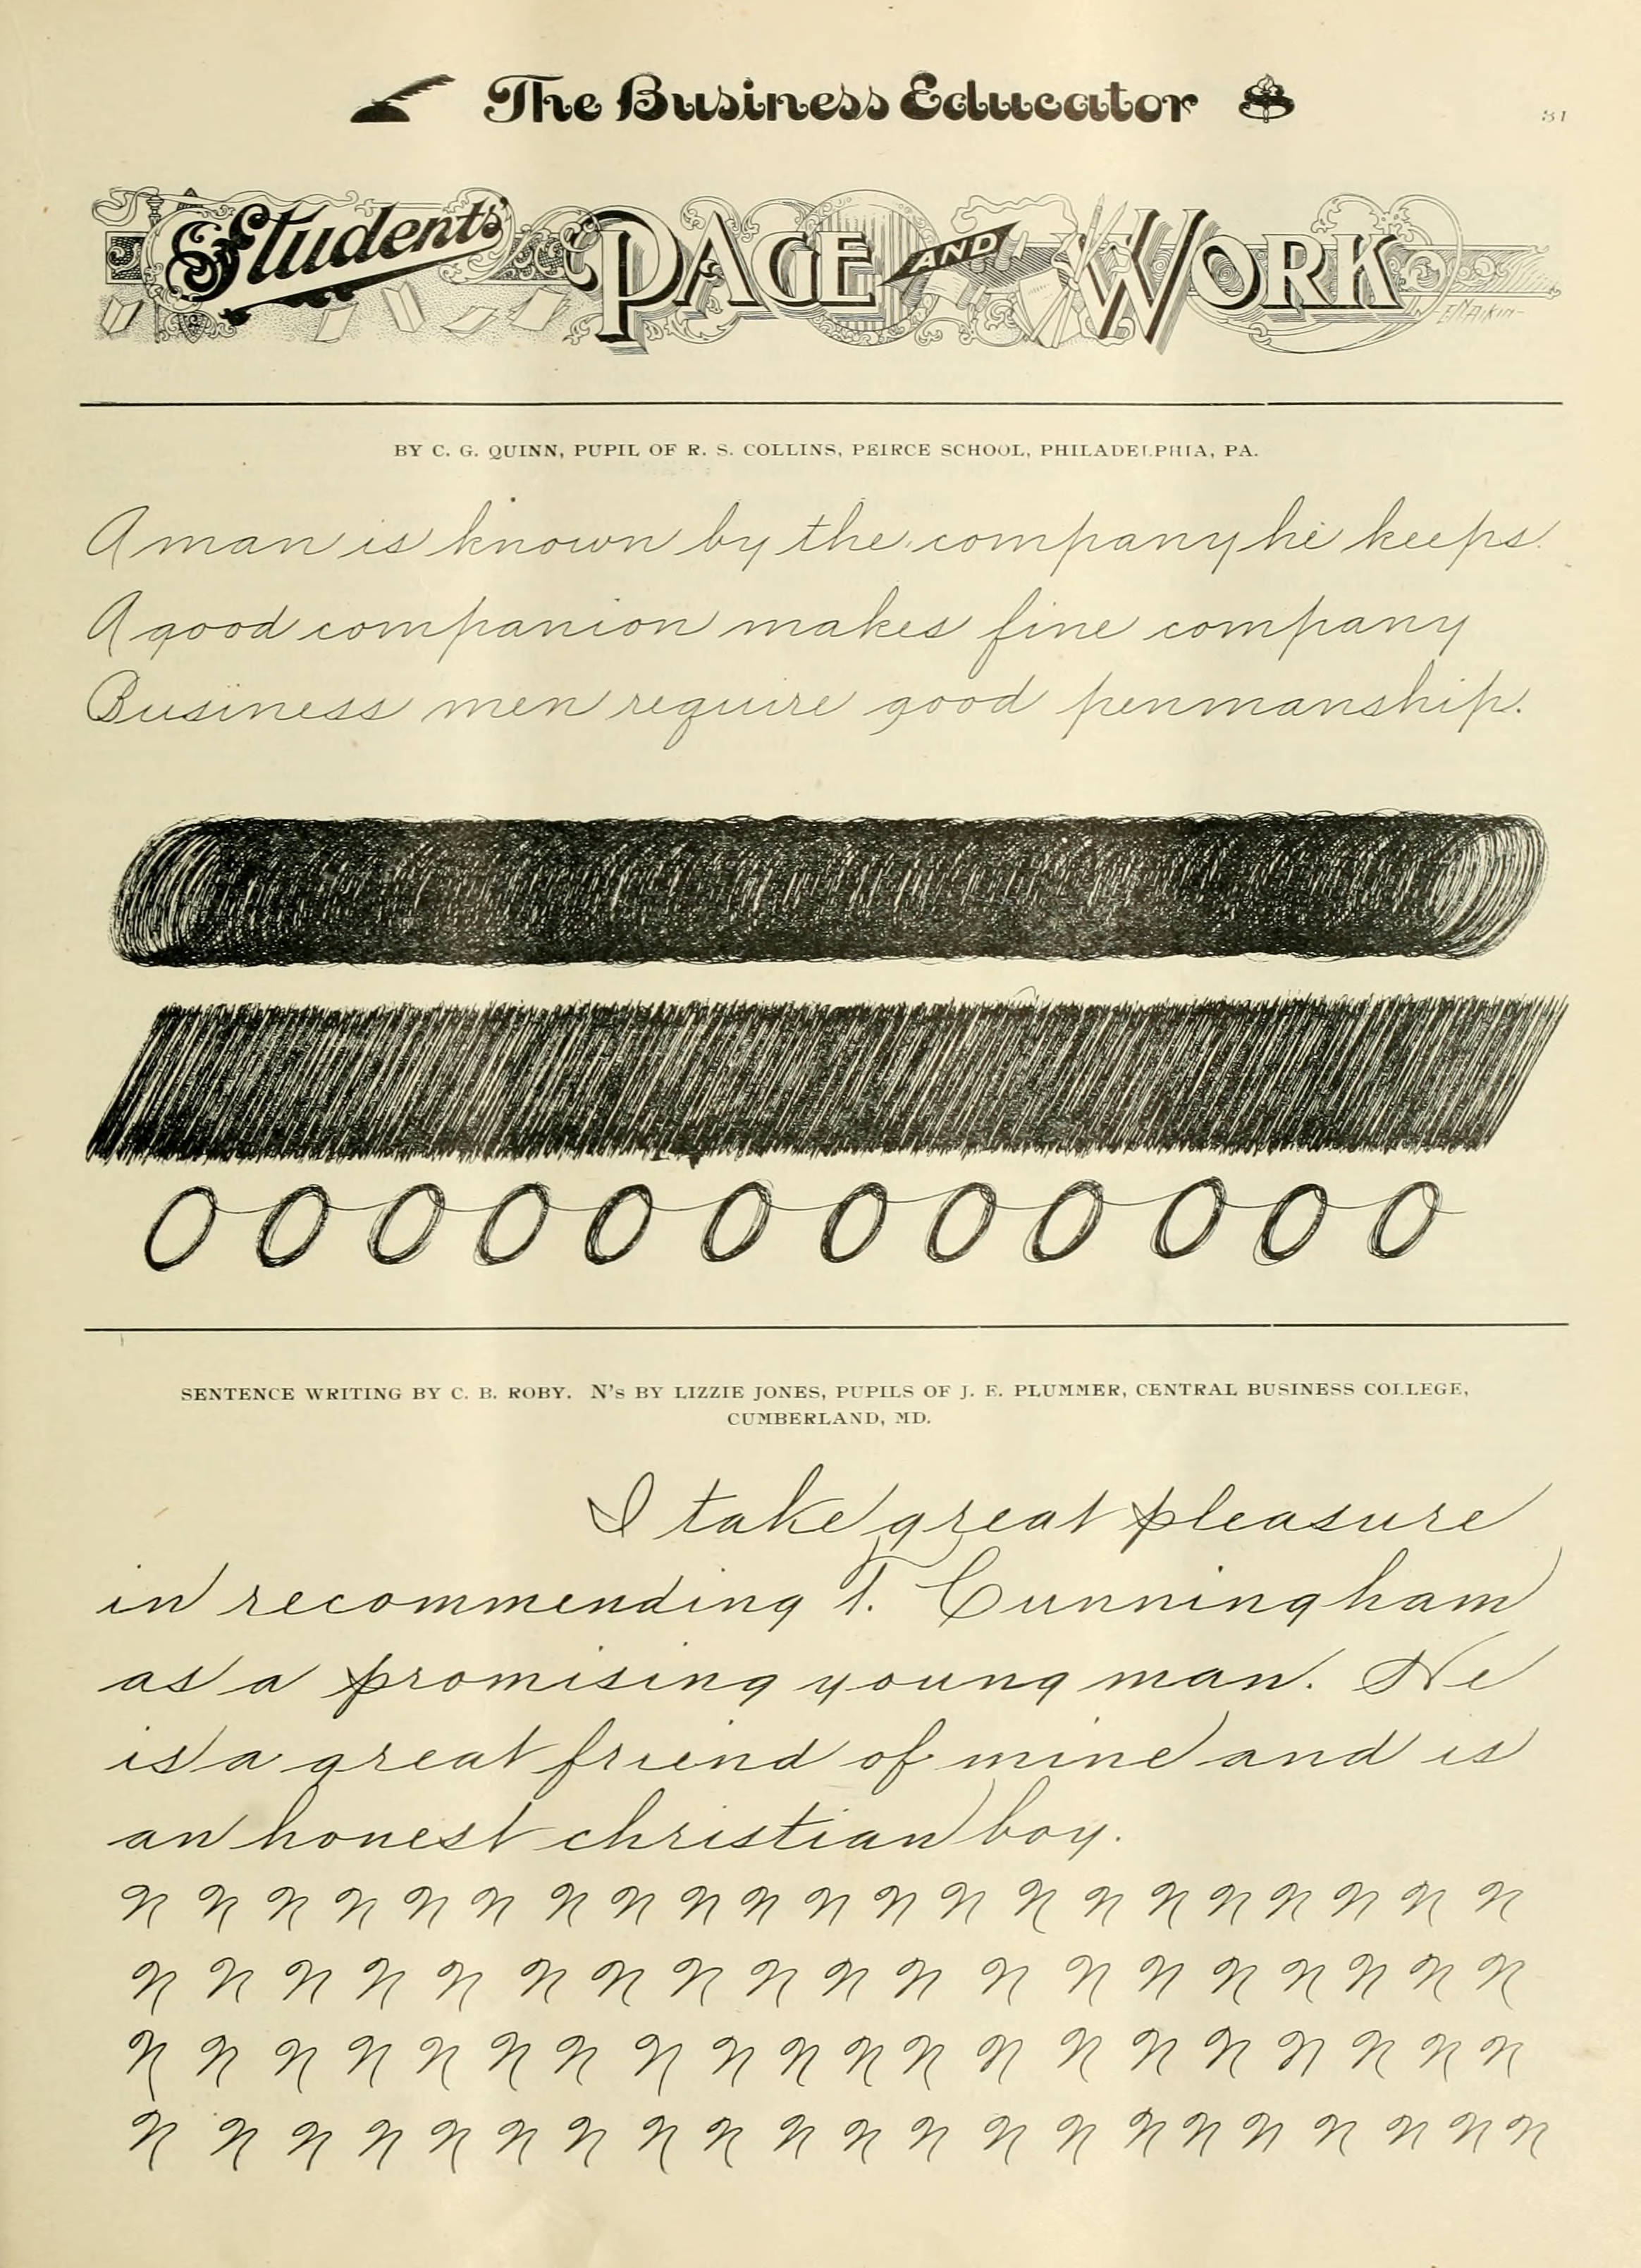 The Business Educator
Students' PAGE AND WORK
BY C. G. QUINN, PUPIL OF R. S. COLLINS, PEIRCE SCHOOL, PHILADELPHIA, PA.
A man is known by the company he keeps.
A good companion makes fine company
Business men require good penmanship.
O O O O O O O O O O O O
SENTENCE WRITING BY C. B. ROBY. N's BY LIZZIE JONES, PUPILS OF J. E. PLUMMER, CENTRAL BUSINESS COLLEGE,
CUMBERLAND, MD.
I take great pleasure
in recommending T. Cunningham
as a promising young man. He
is a great friend of mine and is
an honest christian boy.
N N N N N N N N N N N N N N N N N N N N N
N N N N N N N N N N N N N N N N N N N
N N N N N N N N N N N N N N N N N N N N
N N N N N N N N N N N N N N N N N N N N N